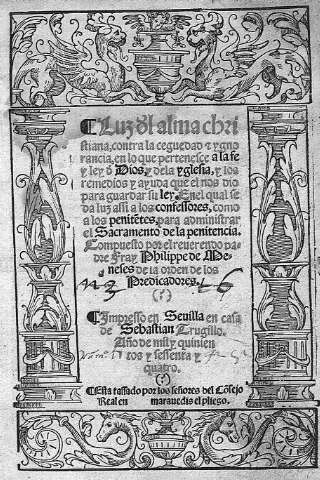 Luz dl alma chri
stiana, contra la ceguedad & ygno
rancia, en lo que pertenesce a la fe
y ley d Dios, & de la yglesia, y los
remedios y ayuda que el nos dio
para guardar su ley. En el qual se
da luz assi a los confessores, como
a los penitētes, para administrar
el Sacramento de la penitencia.
Compuesto por el reuerendo pa
dre Fray Philippe de Me
neses de la orden de los
Predicadores.
Impresso en Seuilla en casa
de Sebastian Trugillo.
Año de mil y quinien
tos y sessenta y
quatro.
Esta tassado por los señores del Cōsejo
Real en marauedis el pliego.